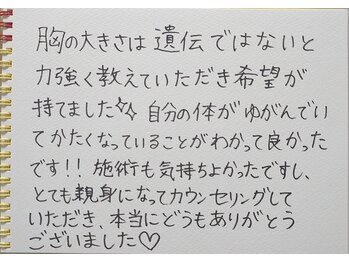 胸の大きさは遺伝ではないと
力強く教えていただき希望が
持てました✨ 自分の体がゆがんでい
てかたくなっていることがわかって良かった
です!! 施術も気持ちよかったですし、
とても親身になってカウンセリングして
いただき、本当にどうもありがとう
ございました♡